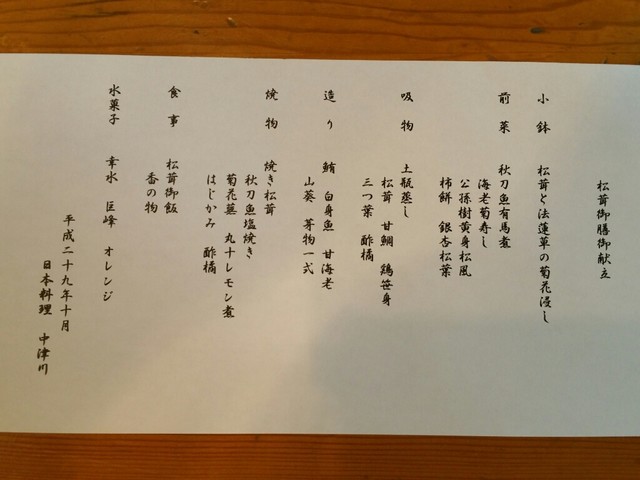 松茸御膳御献立
小鉢 松茸と法蓮草の菊花浸し
前菜 秋刀魚有馬煮
海老菊寿し
公孫樹黄身松風
柿餅 銀杏松葉
吸物 土瓶蒸し
松茸 甘鯛 鶏笹身
三つ葉 酢橘
造り 鮪 白身魚 甘海老
山葵 芽物一式
焼物 焼き松茸
秋刀魚塩焼き
菊花蕪 丸十レモン煮
はじかみ 酢橘
食事 松茸御飯
香の物
水菓子 幸水 巨峰 オレンジ
平成二十九年十月
日本料理 中津川